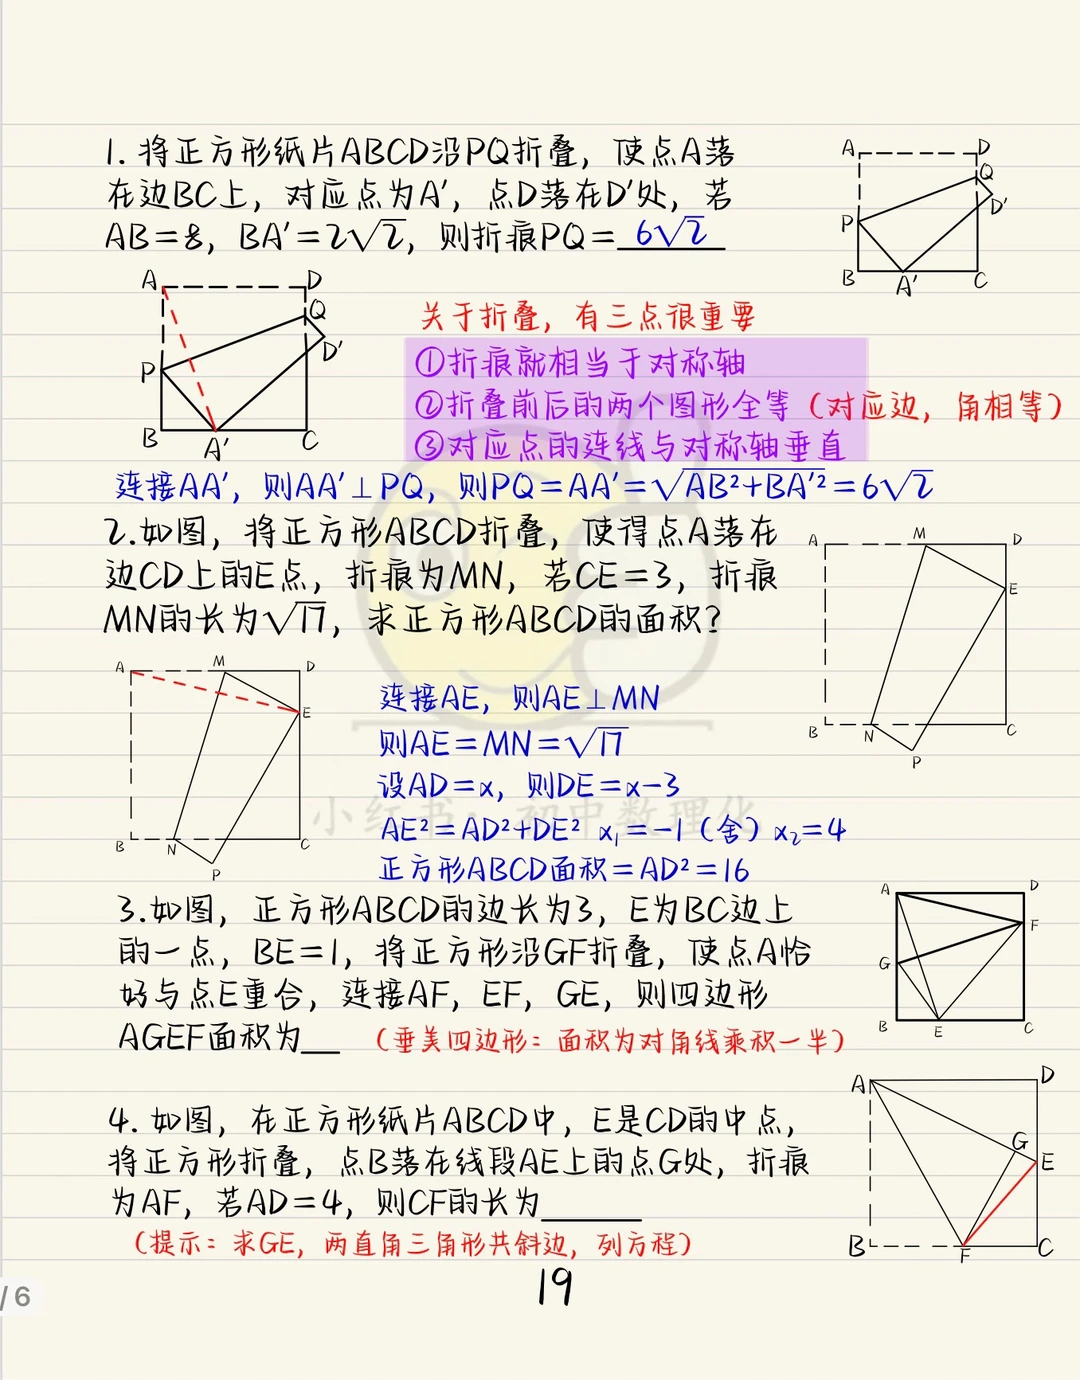 1. 将正方形纸片ABCD沿PQ折叠，使点A落
在边BC上，对应点为A′，点D落在D′处，若
AB=8，BA′=2√2，则折痕PQ=6√2
A D
Q
D′
P
B A′ C
A D
Q
D′
P
B A′ C
关于折叠，有三点很重要
①折痕就相当于对称轴
②折叠前后的两个图形全等（对应边，角相等）
③对应点的连线与对称轴垂直
连接AA′，则AA′⊥PQ，则PQ=AA′=√AB²+BA′²=6√2
2.如图，将正方形ABCD折叠，使得点A落在
边CD上的E点，折痕为MN，若CE=3，折痕
MN的长为√17，求正方形ABCD的面积？
A M D
E
B N C
P
A M D
E
B N C
P
连接AE，则AE⊥MN
则AE=MN=√17
设AD=x，则DE=x-3
AE²=AD²+DE² x₁=-1（舍）x₂=4
正方形ABCD面积=AD²=16
小红书：初中数理化
3.如图，正方形ABCD的边长为3，E为BC边上
的一点，BE=1，将正方形沿GF折叠，使点A恰
好与点E重合，连接AF，EF，GE，则四边形
AGEF面积为__ （垂美四边形：面积为对角线乘积一半）
A D
F
G
B E C
4. 如图，在正方形纸片ABCD中，E是CD的中点，
将正方形折叠，点B落在线段AE上的点G处，折痕
为AF，若AD=4，则CF的长为______
（提示：求GE，两直角三角形共斜边，列方程）
A D
G
E
B F C
19
/6